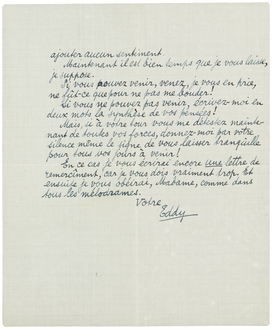 ajouter aucun sentiment.
Maintenant il est bien temps que je vous laisse,
je suppose.
Si vous pouvez venir, venez, je vous en prie,
ne fût-ce que pour ne pas me bouder!
Si vous ne pouvez pas venir, écrivez-moi en
deux mots la synthèse de vos pensées!
Mais, si à votre tour vous me détestez mainte-
nant de toutes vos forces, donnez-moi par votre
silence même le signe de vous laisser tranquille
pour tous vos jours à venir!
En ce cas je vous écrirai encore une lettre de
remerciment, car je vous dois vraiment trop. Et
ensuite je vous obéirai, Madame, comme dans
tous les mélodrames.
Votre
Eddy